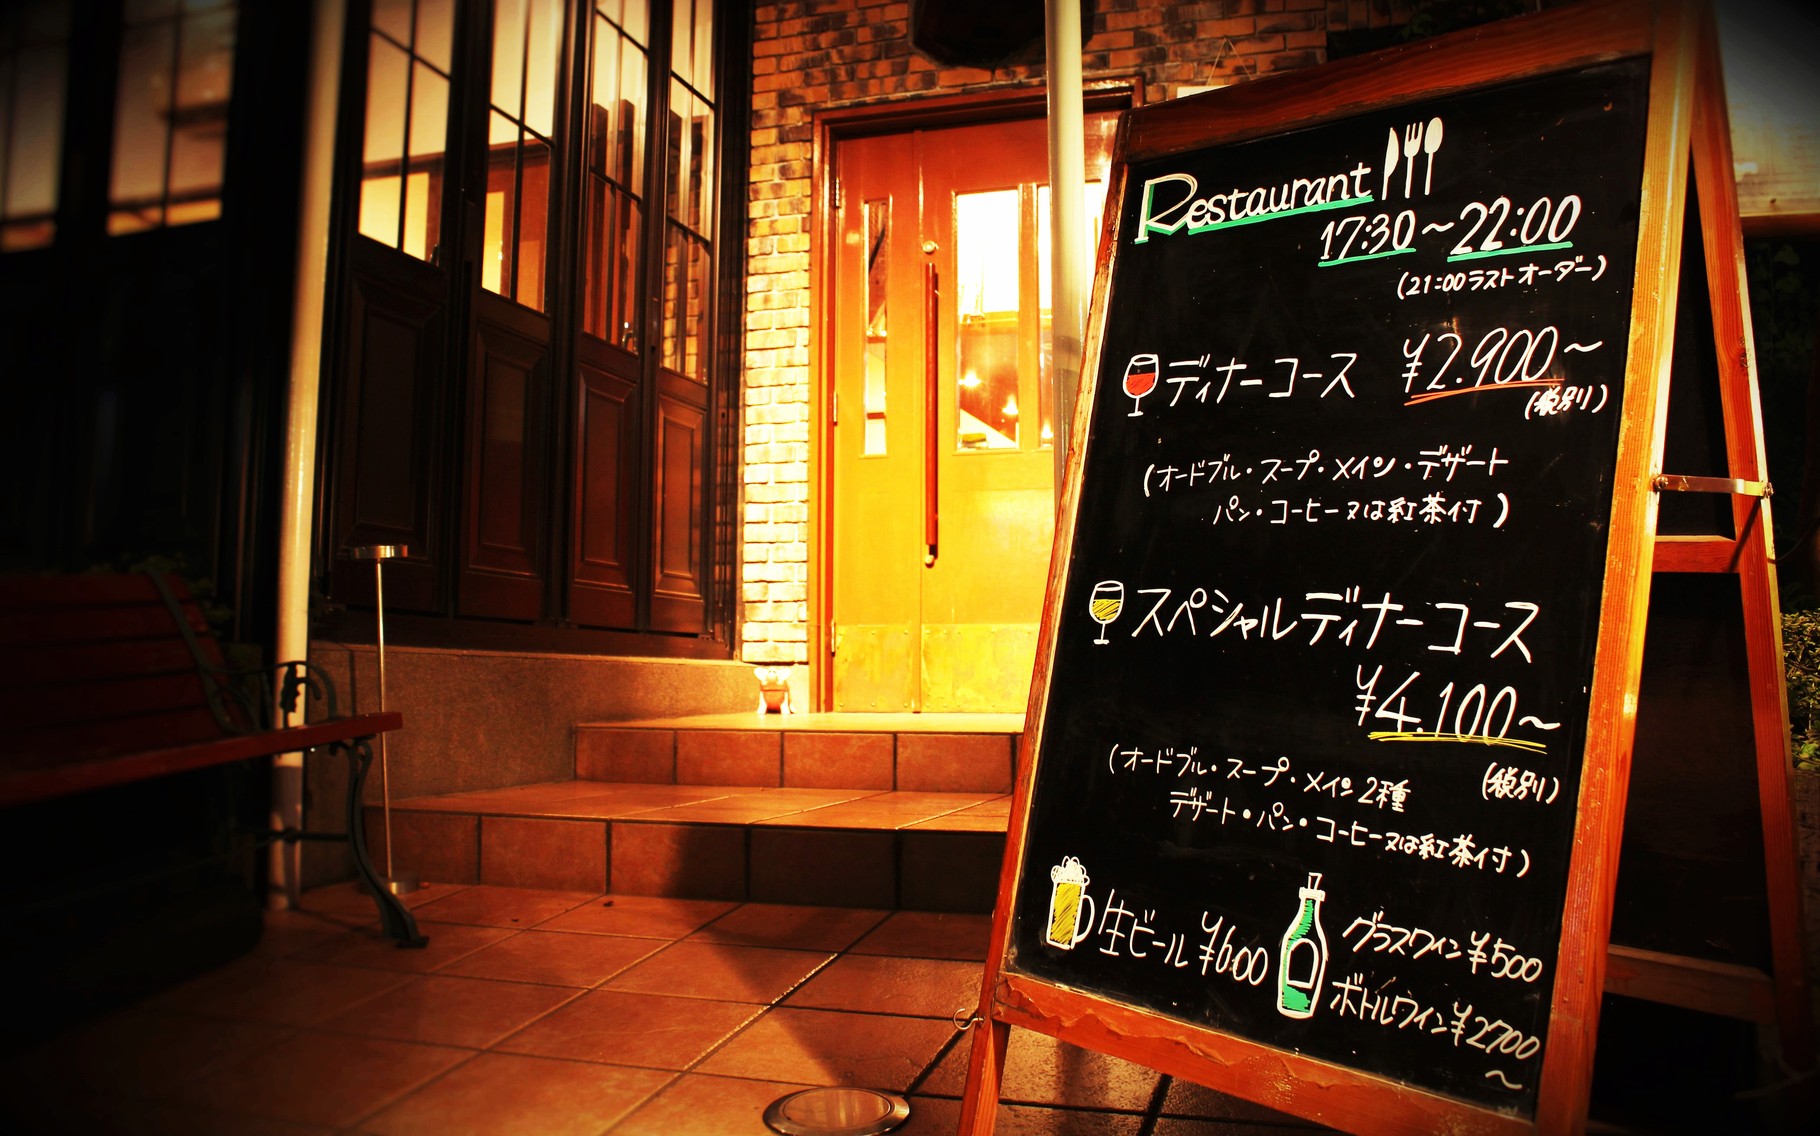 Restaurant
17:30～22:00
(21:00ラストオーダー)
ディナーコース ¥2.900～
(税別)
(オードブル・スープ・メイン・デザート
パン・コーヒー又は紅茶付)
スペシャルディナーコース
¥4.100～
(税別)
(オードブル・スープ・メイン2種
デザート・パン・コーヒー又は紅茶付)
生ビール ¥600
グラスワイン ¥500
ボトルワイン ¥2700
～